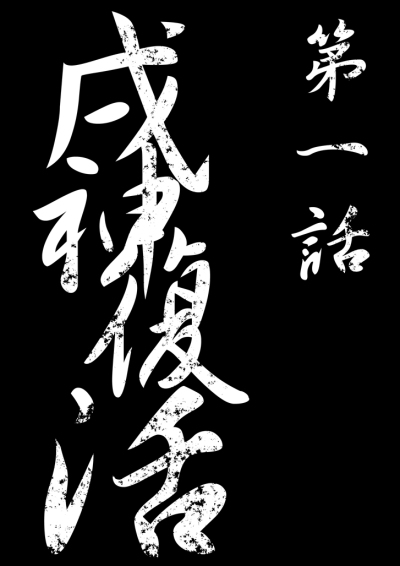 第一話
戌神復活